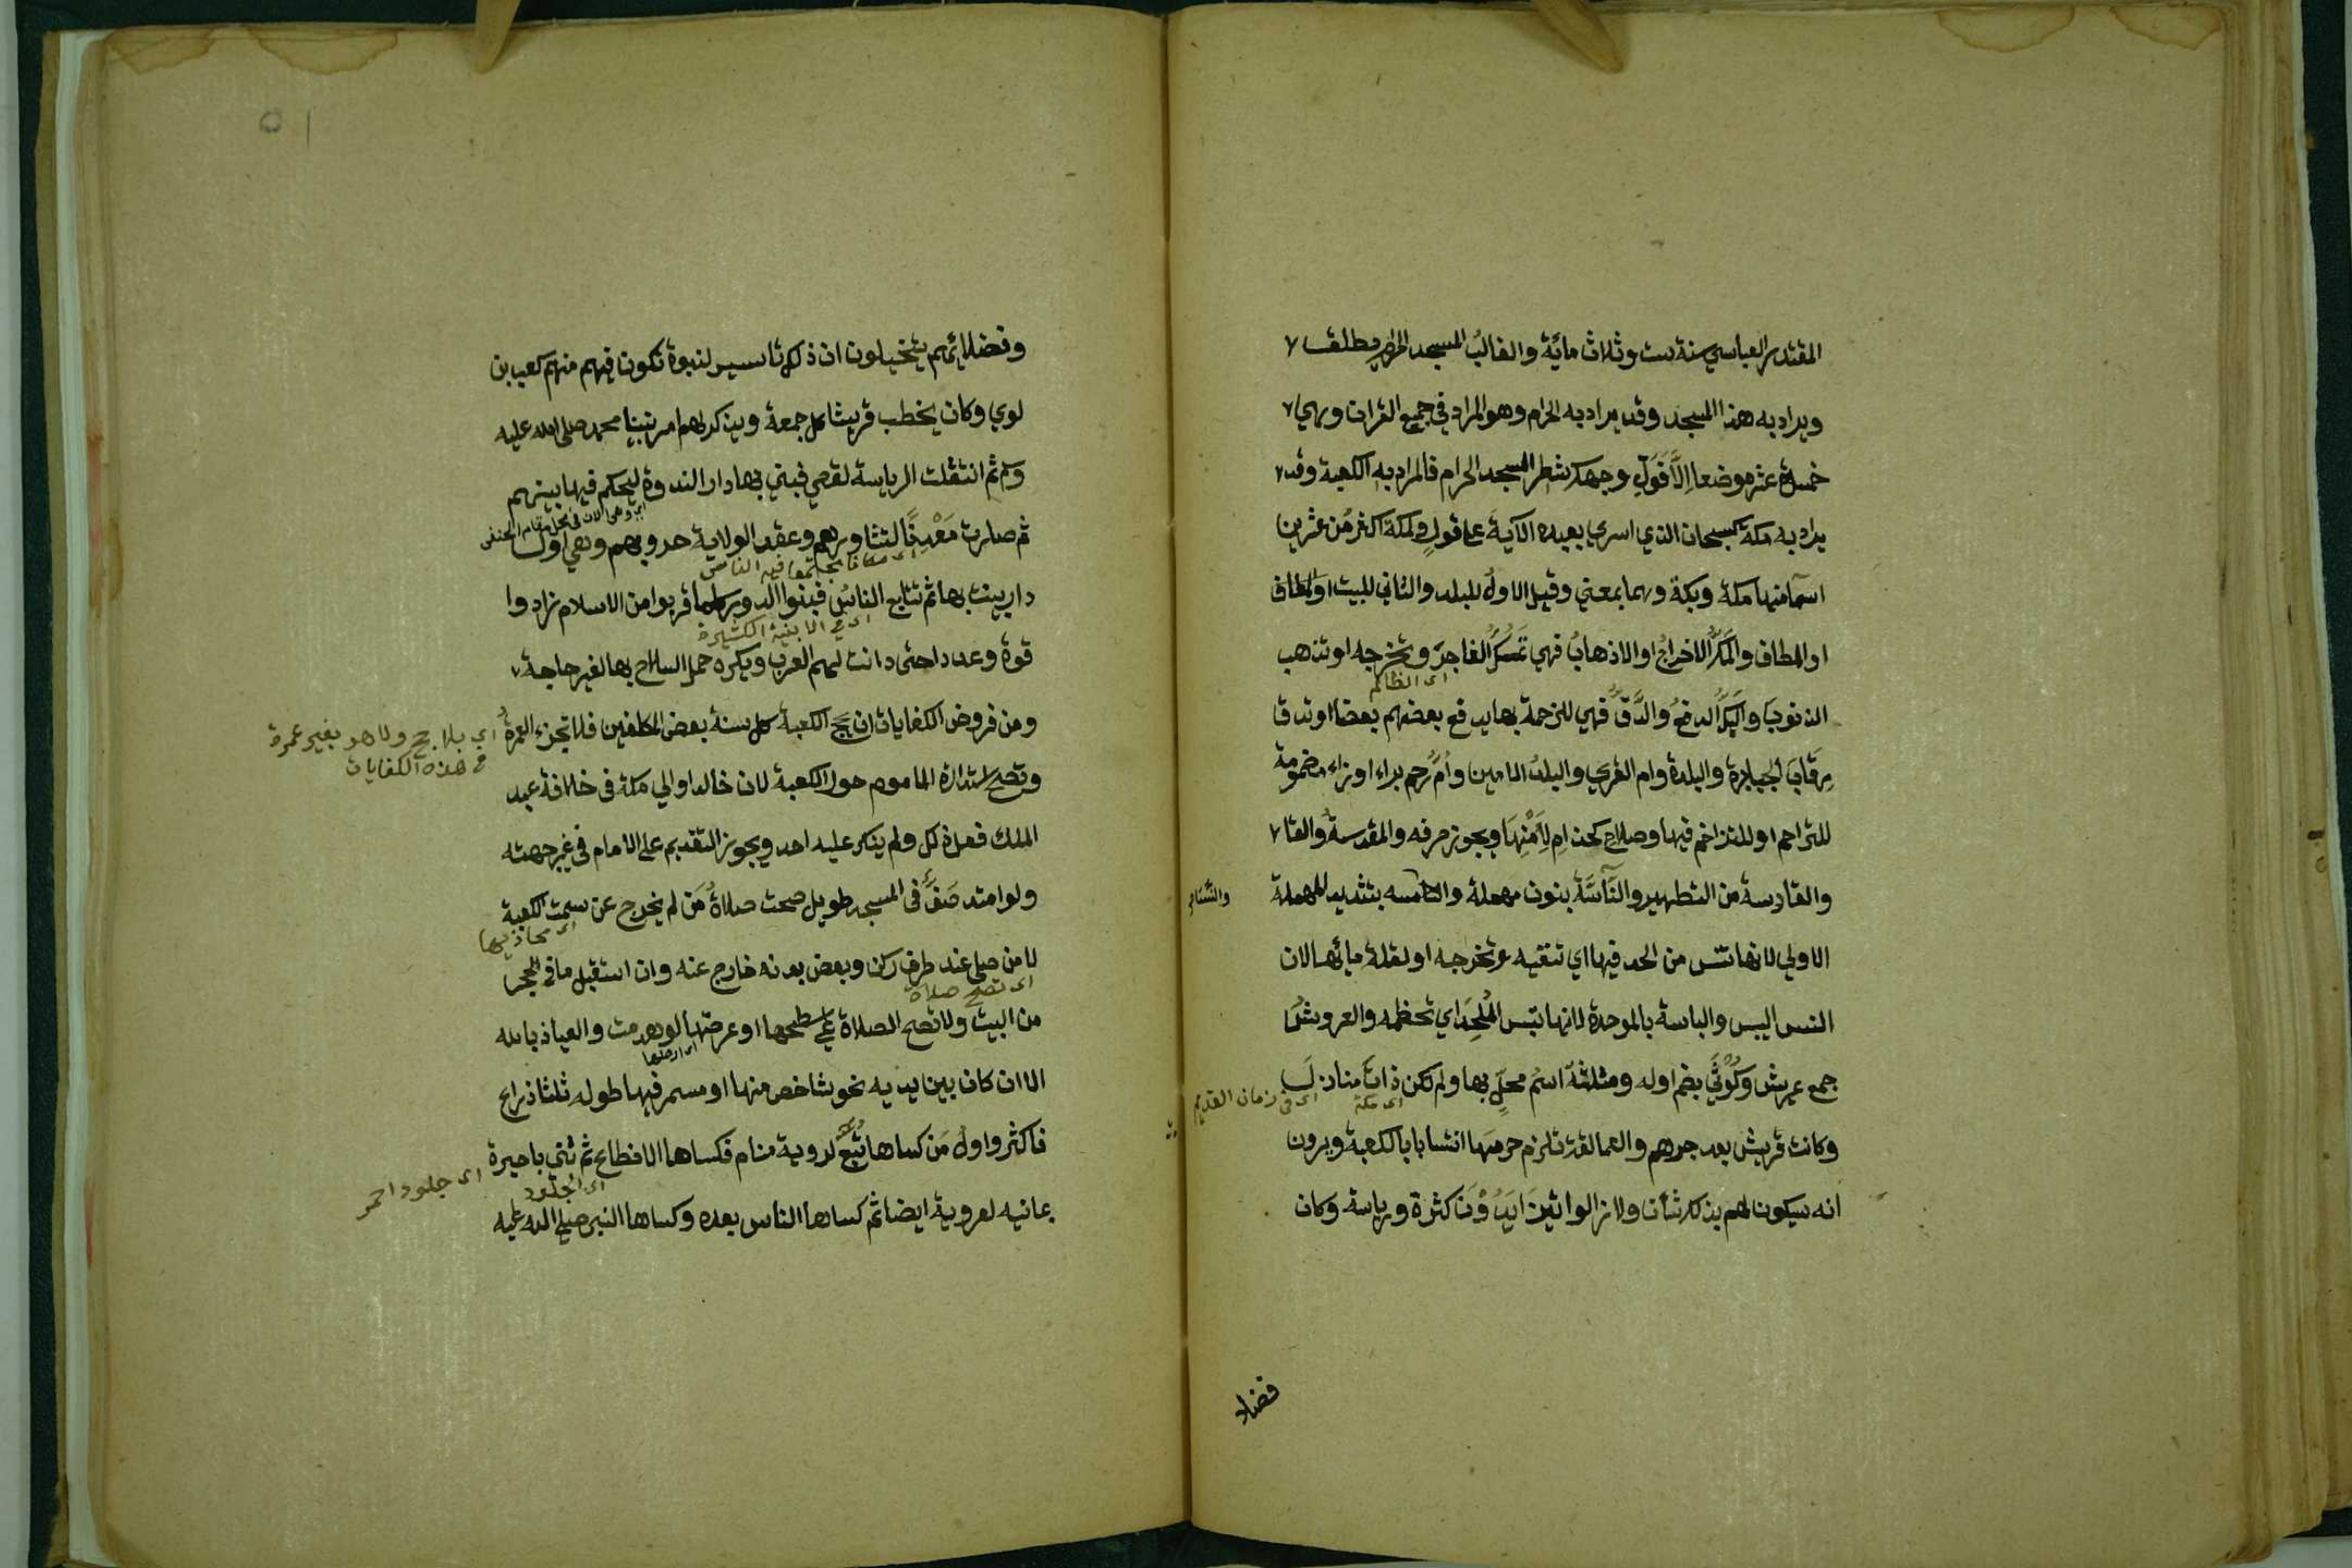 المقتدر العباسي سنة ست وثلاث ماية والغالب المسجد الحرام مطلقا
ويراد به هذا المسجد وقد يراد به الحرام وهو المراد في جميع القران وهي
خمسة عشر موضعا الا فول وجهك شطر المسجد الحرام فالمراد به الكعبة وقد
يراد به مكة كسبحان الذي اسري بعبده الآية على قول ولمكة اكثر من عشرين
اسما منها مكة وبكة وهما بمعني وقيل الاول للبلد والثاني للبيت او المطاف
او المطاف والمَكّ الاخراجُ او الاذهابُ فهي تمكّ الفاجرَ وتخرجه او تذهب
اى الظالم
الذنوب والبكّ الدفعُ والدَّقّ فهي للزحمة بها يدفع بعضهم بعضا او تدق
رقابَ الجبابرة والبلدة وام القري والبلدُ الامين وأمّ رحم براء او زاء مضمومة
للتراحم او للتزاحم فيها وصلاح كحذام لِأَمْنِهَا ويجوز صرفه والمقدسة والقا
والقادسة من التطهير والنَّاسَّة بنون مهملة والناسسه بتشديد المهملة
والنساسه
الاولي لانها تنس من الحد فيها اي تنفيه وتخرجه او لقلة مائها لان
النس اليبس والباسة بالموحدة لانها تبس المُلحِدَ اي تحطمه والعروش
جمع عريش وكُوْثَي بضم اوله ومثلثة اسمُ محلٍ بها ولم تكن ذاتَ منازل
اى مكة
اى فى زمان القديم
وكانت قريش بعد جرهم والعمالقة تلزم حرمتها انتسابا بالكعبة ويرون
انه سيكون لهم بذلك شأن ولا زالوا يتزَايَدُوْنَ كثرة ورياسة وكان
فضلا
وفضلائهم يتخيلون ان ذلك تاسيس لنبوة تكون فيهم منهم كعب بن
لوي وكان يخطب قريشا كل جمعة ويذكر لهم امر نبينا محمد صلى الله عليه
وسلم ثم انتقلت الرياسة لقصي فبني بها دار الندوة ليحكم فيها بينهم
اي وهى الان فى محل مقام الحنفى
ثم صارت مَعْدِنًا لتشاورهم وعقد الولاية حروبهم وهي اول
اى مكانا يجتمعوا فيه الناس
دار بينت بها ثم تتابع الناسُ فبنوا الدور كلما قربوا من الاسلام زادوا
اى فى الابنية الكثيرة
قوة وعددا حتى دانت لهم العرب ويكره حمل السلاح بها لغير حاجة
ومن فروض الكفايات ان تحج الكعبة كل سنة بعض المكلفين فلا تجزء العمرة
اي بلا حج ولا هو بغير عمرة
فى هذه الكفايات
وتصح استدارة الماموم حول الكعبة لان خالدا والي مكة فى خلافة عبد
الملك فعل ذلك ولم ينكر عليه احد ويجوز التقديم على الامام فى غير جهته
ولو امتد صَفٌّ فى المسجد طويل صحت صلاةُ مَن لم يخرج عن سمت الكعبة
اى محاذيها
لا من صلى عند طرف ركن وبعض بدنه خارج عنه وان استقبل ما فى الحجر
اى تصح صلاة
من البيت ولا تصح الصلاة على سطحها او عرصتها لو هدمت والعياذ بالله
اى ارضها
الا ان كان بين يديه نحو شاخص منها او مسمر فيها طوله ثلثا ذراع
فاكثر واول مَن كساها تُبَّع لروية منام فكساها الانطاع ثم ثني باحيرة
اى الجلود
اى جلود احمر
يمانيه لعروية ايضا ثم كساها الناس بعده وكساها النبي صلى الله عليه